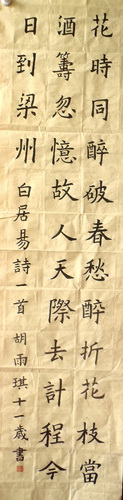 花時同醉破春愁醉折花枝當
酒籌忽憶故人天際去計程今
日到梁州白居易詩一首胡雨琪十一歲書